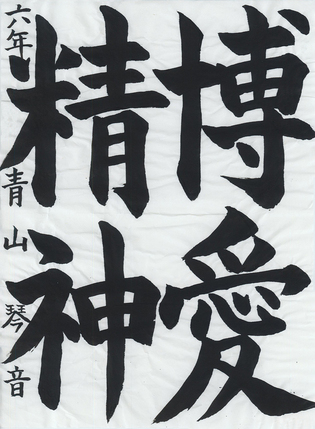 博愛
精神
六年 青山琴音